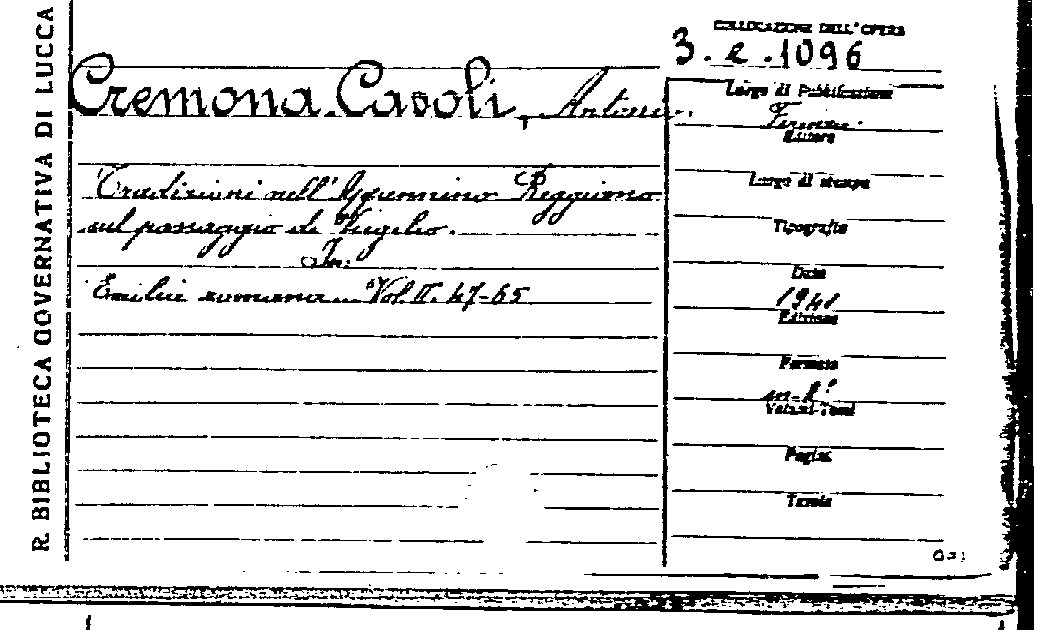 R. BIBLIOTECA GOVERNATIVA DI LUCCA
COLLOCAZIONE DELL'OPERA
3. e. 1096
Cremona Casoli, Antonio.
Tradizioni nell'Appennino Reggiano
sul passaggio di Virgilio.
In:
Emilia romana. Vol. II. 47-65
Luogo di Pubblicazione
Firenze
Editore
Luogo di stampa
Tipografia
Data
1941
Edizione
Formato
in-8°
Volumi-Tomi
Pagine
Tavole